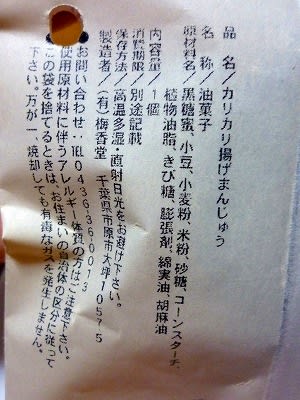 品名/カリカリ揚げまんじゅう
名称/油菓子
原材料名/黒糖蜜、小豆、小麦粉、米粉、砂糖、コーンスターチ、
植物油脂、きび糖、膨張剤、綿実油、胡麻油
内容量/1個
消費期限/別途記載
保存方法/高温多湿・直射日光をお避け下さい。
製造者/(有)梅香堂 千葉県市原市大坪1057-5
お問い合わせ:TEL0436-36-0013
使用原材料に伴うアレルギー体質の方はご注意下さい。
この袋を捨てるときは、お住まいの自治体の区分に従って
下さい。万が一、焼却しても有毒なガスを発生しません。